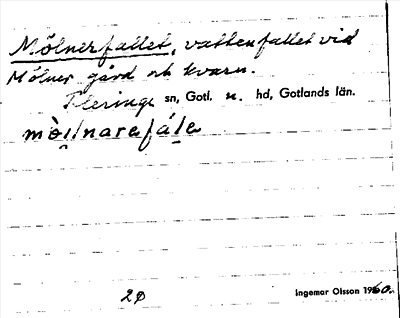 Mölnerfallet, vattenfallet vid
Mölner gård och kvarn.
Fleringe sn, Gotl. n. hd, Gotlands län.
20
Ingemar Olsson 1960.